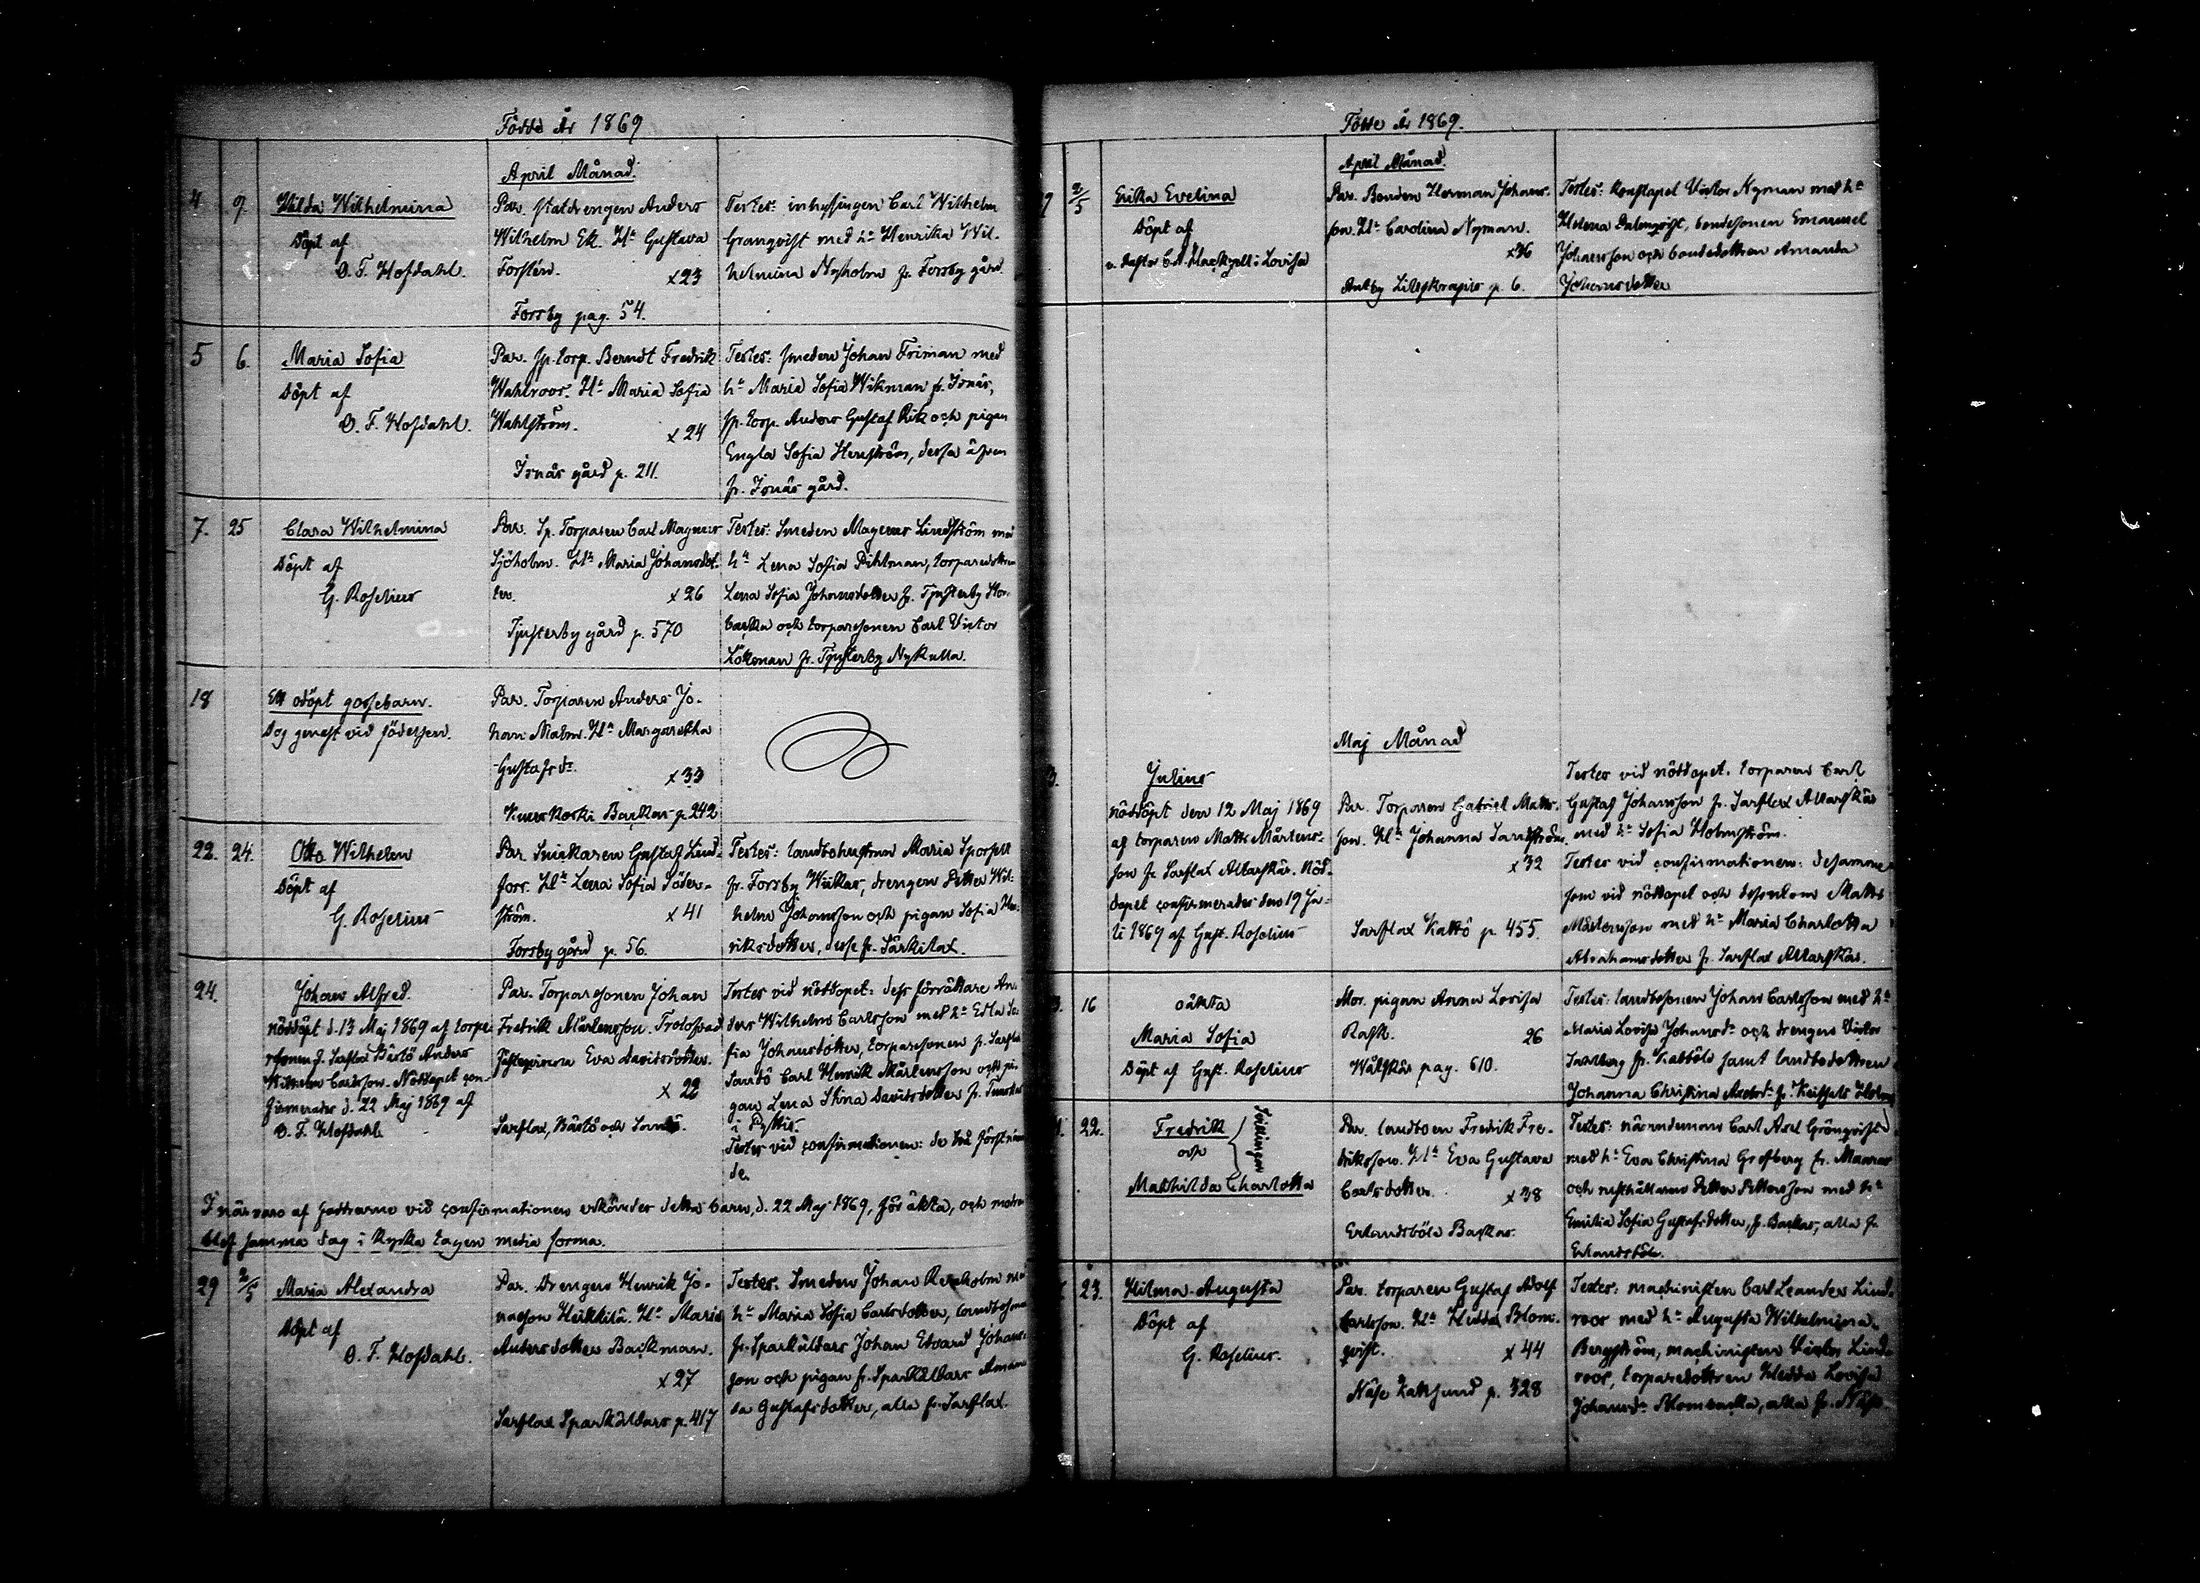 Födde År 1869
April Månad.
4 9. Hilda Wilhelmina
Döpt af
O. F. Hofdahl.
Par. Statdrengen Anders
Wilhelm Ek. H:a Gustava
Forstén.
x23
Forsby pag. 54.
Testes: inhysingen Carl Wilhelm
Granqvist med h:u Henrika Wil-
helmina Nyholm fr. Forsby gård
5 6. Maria Sofia
Döpt af
O. F. Hofdahl.
Par. sp. torp. Berndt Fredrik
Wahlroos. H:a Maria Sofia
Wahlström.
x24
Isnäs gård p. 211.
Testes: smeden Johan Friman med
h:u Maria Sofia Wikman fr. Isnäs,
sp. torp. Anders Gustaf Rik och pigan
Engla Sofia Henström, dessa äfven
fr. Isnäs gård.
7. 25 Clara Wilhelmina
Döpt af
G. Roselius
Par. Sp. Torparen Carl Magnus
Sjöholm. H:u Maria Johansdot-
ter.
x26
Tjusterby gård p. 570
Testes: Smeden Magnus Lindström med
h:u Lena Sofia Pihlman, torparedottren
Lena Sofia Johansdotter fr. Tjusterby Stor-
backa och torparesonen Carl Victor
Lökman fr. Tjusterby Nykulla.
18 Ett odöpt gossebarn.
Dog genast vid födelsen.
Par. Torparen Anders Jo-
han Malm. H:u Margaretha
Gustafsdr.
x33
Kuuskoski Backas p. 242
22. 24. Otto Wilhelm
Döpt af
G. Roselius
Par. Snickaren Gustaf Lind-
fors. H:u Lena Sofia Söder-
ström.
x41
Forsby gård p. 56.
Testes: landbohustrun Maria
fr. Forsby Wiikas, drengen Petter Wil-
helm Johansson och pigan Sofia Hen-
riksdotter, desse fr. Särkilax.
24. Johan Alfred.
nöddöpt d. 13 Maj 1869 af torpa-
resonen fr. Sarflax Bästö Anders
Wilhelm Carlsson. Nöddopet con-
firmerades d. 22 Maj 1869 af
O. F. Hofdahl.
Par. Torparesonen Johan
Fredrik Mårtensson. Trolofvad
fästeqvinna Eva Davidsdotter.
x 22
Sarflax, Bästö och Sandö.
Testes vid nöddopet: dess förrättare An-
ders Wilhelm Carlsson med h:u Edla So-
fia Johansdotter, torparesonen fr. Sarflax
Sandö Carl Henrik Mårtensson och pi-
gan Lena Stina Davidsdotter fr.
i Pyttis.
Testes vid confirmationen: de två förstnämn
de.
I närvaro af faddrarne vid confirmationen erkändes detta barn, d. 22 Maj 1869, för äkta, och modren
blef samma dag i kyrka tagen media forma.
29 2/5 Maria Alexandra
Döpt af
O. F. Hofdahl.
Par. Drengen Henrik Jo-
nasson Heikkilä. H:u Maria
Andersdotter Backman.
x27
Sarflax Sparkuldars p. 417
Testes: Smeden Johan Renholm med
h:u Maria Sofia Carlsdotter, landbosonen
fr. Sparkuldars Johan Edvard Johans-
son och pigan fr. Sparkuldars Aman-
da Gustafsdotter, alla fr. Sarflax.
Födde År 1869.
April Månad.
2/5 Erika Evelina
Döpt af
v. Pastor C. A. Mackzell i Lovisa
Par. Bonden Herman Johans-
son. H:u Carolina Nyman.
x36
Antby Lillskrapis p. 6.
Testes: Konstapel Victor Nyman med h:u
Helena Palmqvist, bondesonen Emanuel
Johansson och bondedottren Amanda
Johansdotter
Maj Månad
Julius
nöddöpt den 12 Maj 1869
af torparen Matts Mårtens-
son fr. Sarflax Allarskär. Nöd-
dopet confirmerades den 19 Ju-
li 1869 af Gust. Roselius
Par. Torparen Gabriel Matts-
son. H:u Johanna Sandström.
x32
Sarflax Kattö p. 455.
Testes vid nöddopet. torparen Carl
Gustaf Johansson fr. Sarflax Allarskär
med h:u Sofia Holmström.
Testes vid confirmationen: desamme
som vid nöddopet och dessutom Matts
Mårtensson med h:u Maria Charlotta
Abrahamsdotter fr. Sarflax Allarskär.
16 oäkta
Maria Sofia
Döpt af Gust. Roselius
Mor. pigan Anna Lovisa
Rask.
26
Wålskär pag. 610.
Testes: landbosonen Johan Carlsson med h:u
Maria Lovisa Johansdr. och drengen Victor
Sandberg fr. Kabböle samt landbodottren
Johanna Christina Andersdr. fr. Keitsals
22. Fredrik
och
Mathilda Charlotta
Tvillingar
Par. landboen Fredrik Fre-
driksson. H:u Eva Gustava
Carlsdotter.
x38
Erlandsböle Backas.
Testes: nämndeman Carl Axel Grönqvist
med h:u Eva Christina Grefberg fr. Maaras
och rusthållaren Petter Pettersson med h:u
Emilia Sofia Gustafsdotter, fr. Backas, alla fr.
Erlandsböle.
23. Hilma Augusta
Döpt af
G. Roselius.
Par. torparen Gustaf Adolf
Carlsson. H:u Hedda Blom-
qvist.
x44
Näse Kattsund p. 328
Testes: machinisten Carl Leander Lind-
roos med h:u Augusta Wilhelmina
Bergström, machinisten Victor Lind-
roos, torparedottren Hedda Lovisa
Johansdr. Blombacka, alla fr. Näse